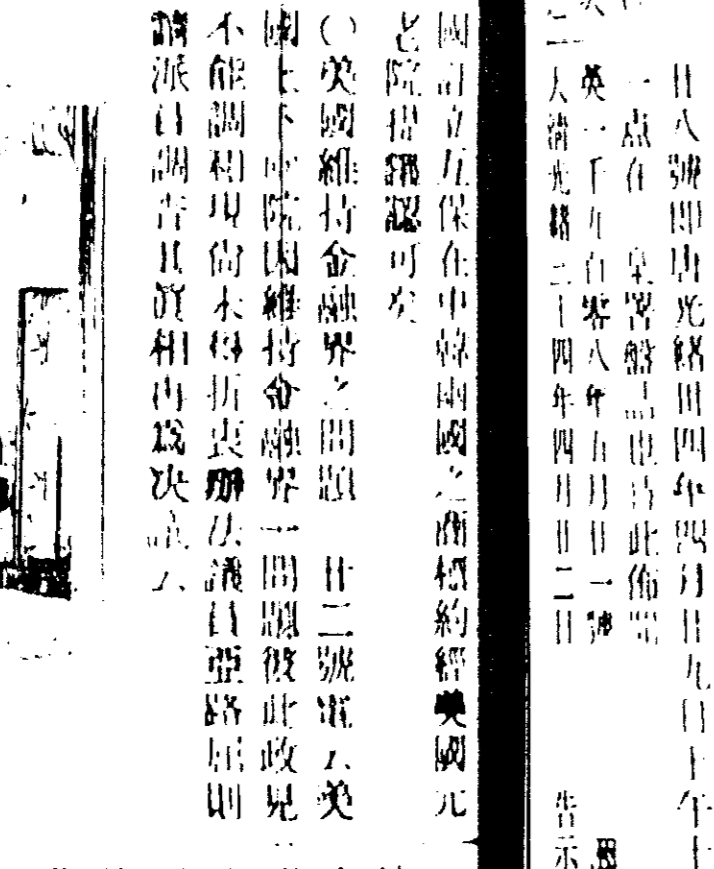 廿八號即唐光緒卅四年四月廿九日上午十
一点在 皇署盤点出沽此佈
英一千九百零八年五月廿一號
大清光緒三十四年四月廿二日 告示
國訂立互保在中韓兩國之商標約經美國元
老院措詞認可矣
〇美國維持金融界之問題 廿二號電云美
國上下兩院因維持金融界一問題彼此政見
不能調和現尚未得折衷辦法議員亞路屈則
請派員調查其真相再為決議云